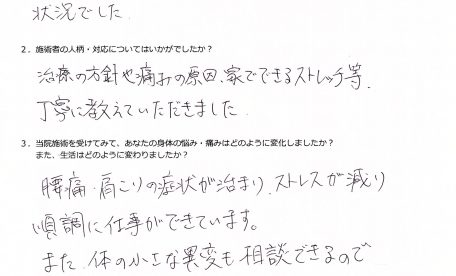 状況でした
2. 施術者の人柄・対応についてはいかがでしたか?
治療の方針や痛みの原因、家でできるストレッチ等、
丁寧に教えていただきました
3. 当院施術を受けてみて、あなたの身体の悩み・痛みはどのように変化しましたか?
また、生活はどのように変わりましたか?
腰痛・肩こりの症状が治まり、ストレスが減り
順調に仕事ができています。
また、体の小さな異変も相談できるので